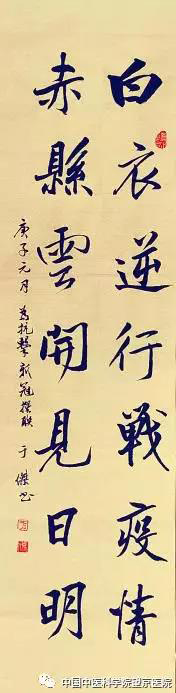 白衣逆行戰疫情
赤縣雲開見日明
庚子元月為抗擊新冠撰聯 于傑書
中国中医科学院望京医院